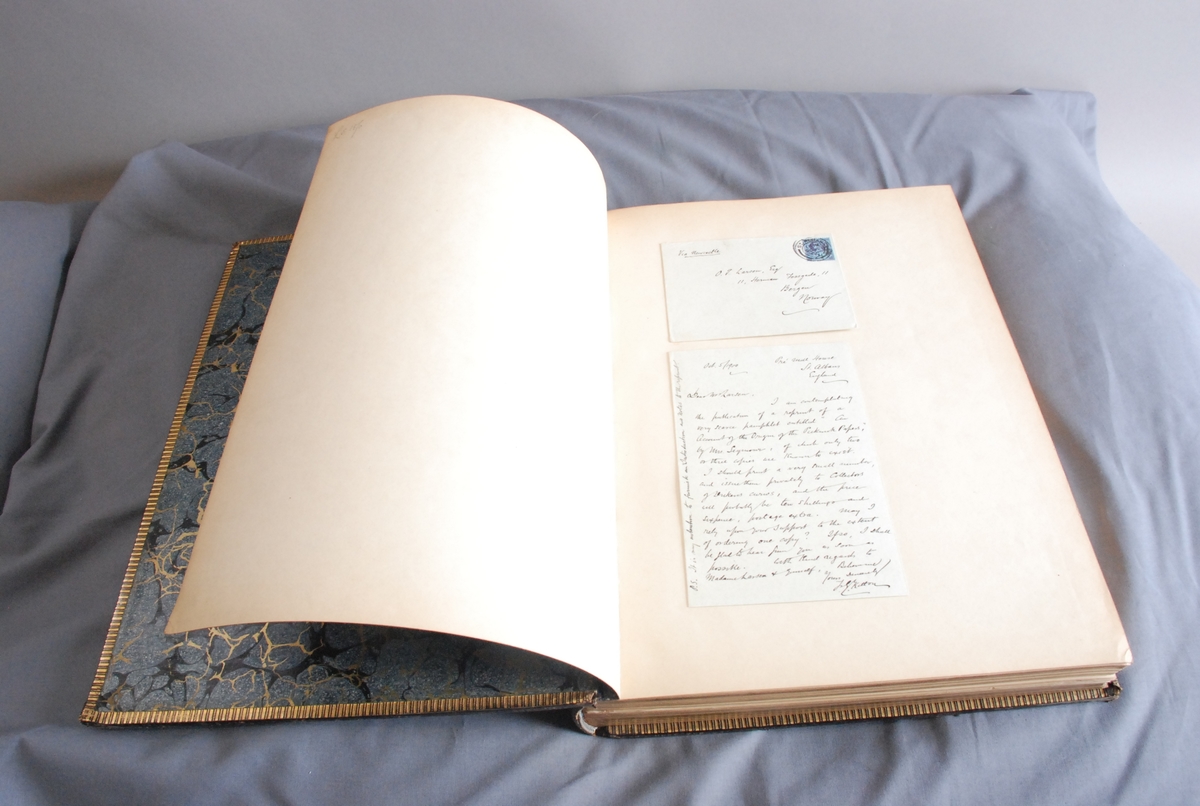 Via Newcastle
O. T. Larsen, Esq
11,
Bergen
Norway
Pré Mill House
St. Albans
England
Dear Mr Larsen,
I am contemplating
the publication of a reprint of a
very scarce pamphlet entitled "An
Account of the Origin of the Pickwick Papers",
by Mrs Seymour, of which only two
or three copies are known to exist.
I should print a very small number,
and issue them privately to Collectors
of Dickens, and the price
will probably be ten shillings and
sixpence, postage extra. May I
rely upon your support to the extent
of ordering one copy? If so, I shall
be glad to hear from you as soon as
possible. With kind regards to
Madame Larsen & yourself, Believe me
Yours sincerely
F G Kitton
P.S. It is my intention to furnish an Introduction and Notes to the reprint